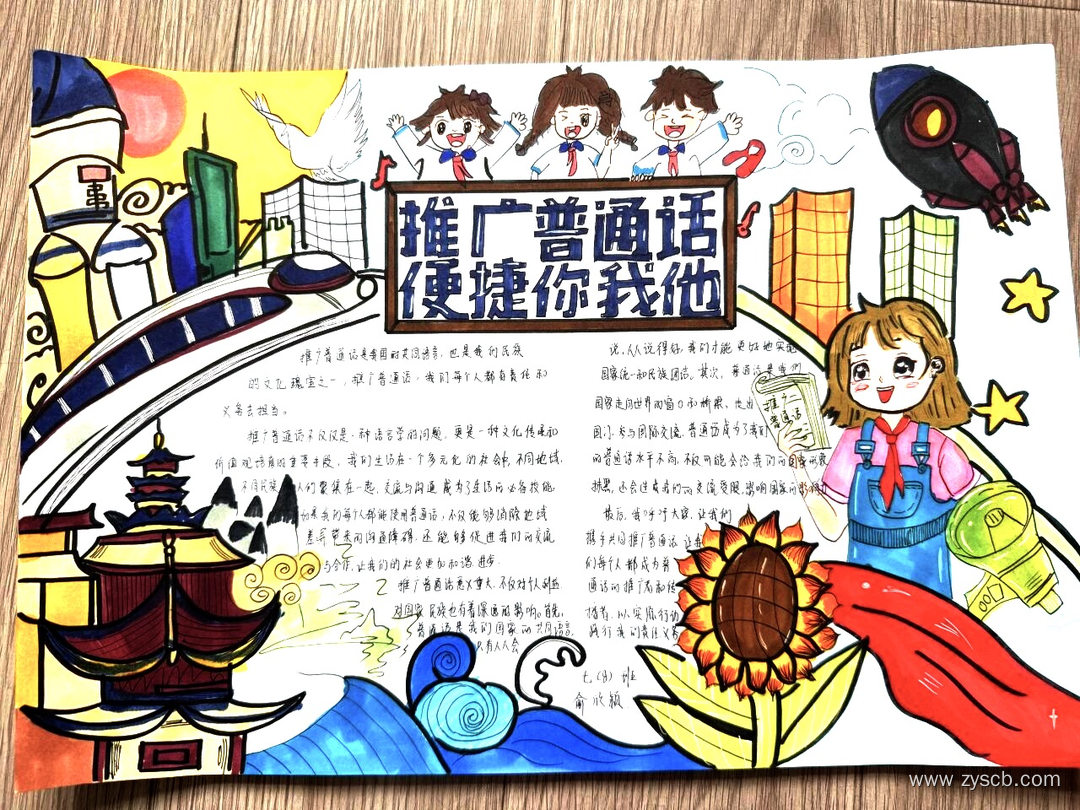 推广普通话
便捷你我他
推广普通话是我国的共同语言，也是我们民族
的文化瑰宝之一，推广普通话，我们每个人都有责任和
义务去担当。
推广普通话不仅仅是一种语言学的问题，更是一种文化传承和
价值观培育的重要手段，我们生活在一个多元化的社会中，不同地域、
不同民族 人们聚集在一起，交流与沟通成为了生活的必备技能，
如果我们每个人都能使用普通话，不仅能够消除地域
差异带来的沟通障碍，还能够促进我们的交流
与合作，让我们的社会更加和谐、进步
推广普通话意义重大，不仅对个人 利益，
对国家 民族也有着深远的影响。首先，
普通话是我们国家的共同语言，
只有人人会
说，人人说得好，我们才能更好地实现
国家统一和民族团结。其次，普通话是我们
国家走向世界的窗口和桥梁，走出
国门，参与国际交流，普通话成为了我们
的普通话水平不高，不仅可能会给我们的国家形象
抹黑，还会造成我们的交流受限，影响国家的影响
最后，我呼吁大家，让我们
携手共同推广普通话，让我
们每个人都成为普
通话的推广者和传
播者，以实际行动
践行我们责任义务
七(8)班
俞欣颖
推广
普通话
www.zyscb.com